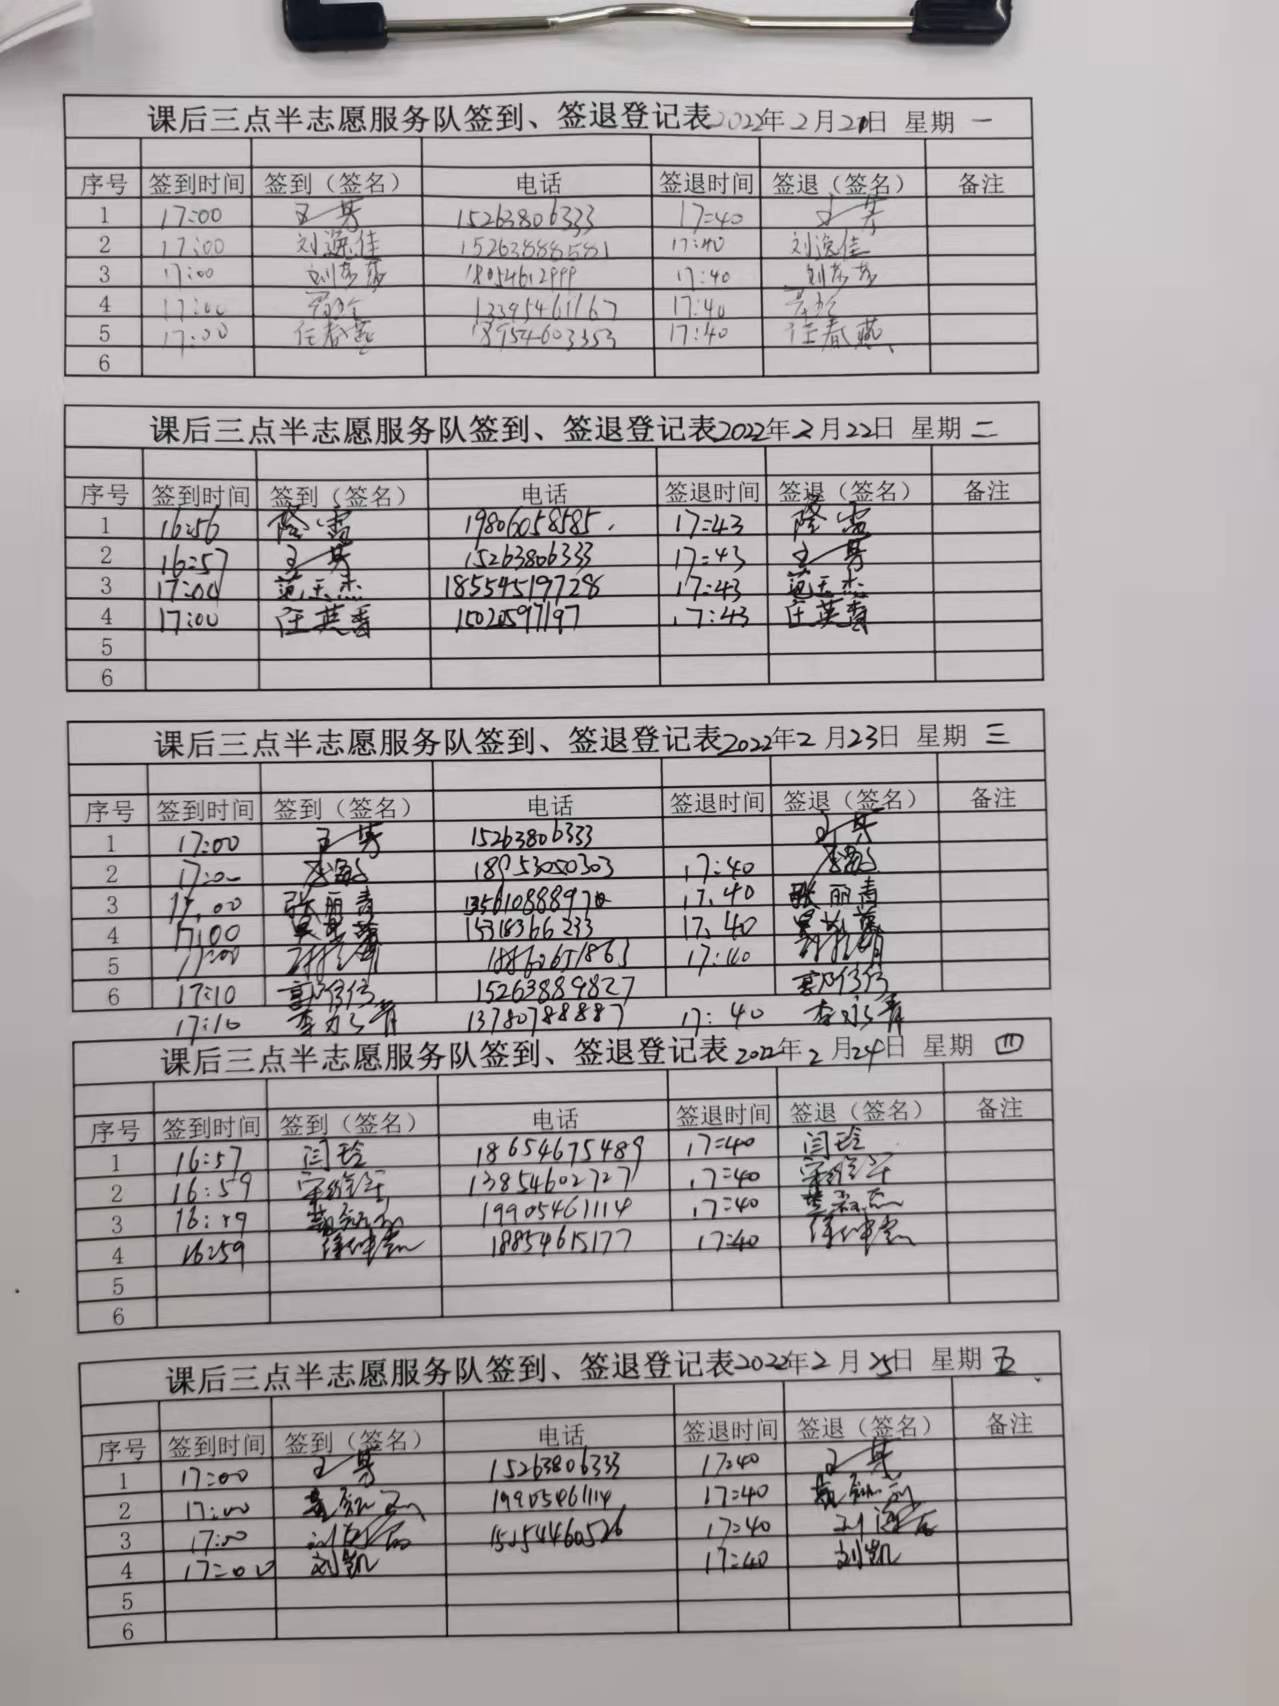 课后三点半志愿服务队签到、签退登记表2022年2月21日 星期 一
序号 签到时间 签到（签名） 电话 签退时间 签退（签名） 备注
1 17:00 王芳 15263806333 17:40 王芳
2 17:00 刘逸佳 15263888581 17:40 刘逸佳
3 17:00 18054612999 17:40
4 17:00 13395461167 17:40
5 17:00 任春燕 18954603353 17:40 任春燕
6
课后三点半志愿服务队签到、签退登记表2022年2月22日 星期 二
序号 签到时间 签到（签名） 电话 签退时间 签退（签名） 备注
1 16:56 隆雪 19806058585 17:43 隆雪
2 16:57 王芳 15263806333 17:43 王芳
3 17:00 范玉杰 185545197728 17:43 范玉杰
4 17:00 汪英香 15020597197 17:43 汪英香
5
6
课后三点半志愿服务队签到、签退登记表2022年2月23日 星期 三
序号 签到时间 签到（签名） 电话 签退时间 签退（签名） 备注
1 17:00 王芳 15263806333 王芳
2 17:00 18953050303 17:40
3 17:00 张丽青 17:40 张丽青
4 17:00 15318366233 17:40
5 17:00 17:40
6 17:10 15263889827
17:10 李永青 13780788887 17:40 李永青
课后三点半志愿服务队签到、签退登记表2022年2月24日 星期 四
序号 签到时间 签到（签名） 电话 签退时间 签退（签名） 备注
1 16:57 闫玲 18654675489 17:40 闫玲
2 16:59 13854602727 17:40
3 16:59 19905461114 17:40
4 16:59 18854615177 17:40
5
6
课后三点半志愿服务队签到、签退登记表2022年2月25日 星期 五
序号 签到时间 签到（签名） 电话 签退时间 签退（签名） 备注
1 17:00 王芳 15263806333 17:40 王芳
2 17:00 19905461114 17:40
3 17:00 15154460526 17:40
4 17:00 刘凯 17:40 刘凯
5
6